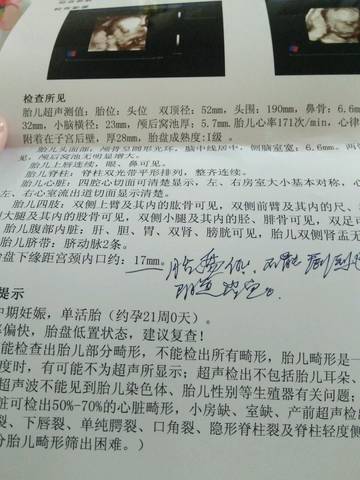 检查所见
胎儿超声测值：胎位：头位 双顶径：52mm，头围：190mm，鼻骨：6.6m
32mm，小脑横径：23mm，颅后窝池厚：5.7mm.胎儿心率171次/min，心律
附着在子宫后壁，厚28mm，胎盘成熟度：I级 。
胎儿头面部：颅骨呈圆形光环，脑中线居中，侧脑室宽：6.6mm。两
见，颅后窝池无明显增大。
胎儿上唇连续，眼、鼻可见。
胎儿脊柱：脊柱双光带平形排列，整齐连续。
胎儿心脏：四腔心切面可清楚显示，左、右房室大小基本对称，心
左、右心室流出道切面显示清楚。
胎儿四肢：双侧上臂及其内的肱骨可见，双侧前臂及其内的尺、
大腿及其内的股骨可见，双侧小腿及其内的胫、腓骨可见，双足可
胎儿腹部内脏：肝、胆、胃、双肾、膀胱可见，胎儿双侧肾盂无
胎儿脐带：脐动脉2条。
胎盘下缘距宫颈内口约：17mm。
提示
中期妊娠，单活胎（约孕21周0天）。
率偏快，胎盘低置状态，建议复查！
能检查出胎儿部分畸形，不能检出所有畸形，胎儿畸形是一
度时，有可能不为超声所显示；超声检出不包括胎儿耳朵、
超声波不能见到胎儿染色体、胎儿性别等生殖器有关问题；
脏可检出50%-70%的心脏畸形，小房缺、室缺、产前超声检
裂、下唇裂、单纯腭裂、口角裂、隐形脊柱裂及脊柱轻度侧
分胎儿畸形筛出困难。）